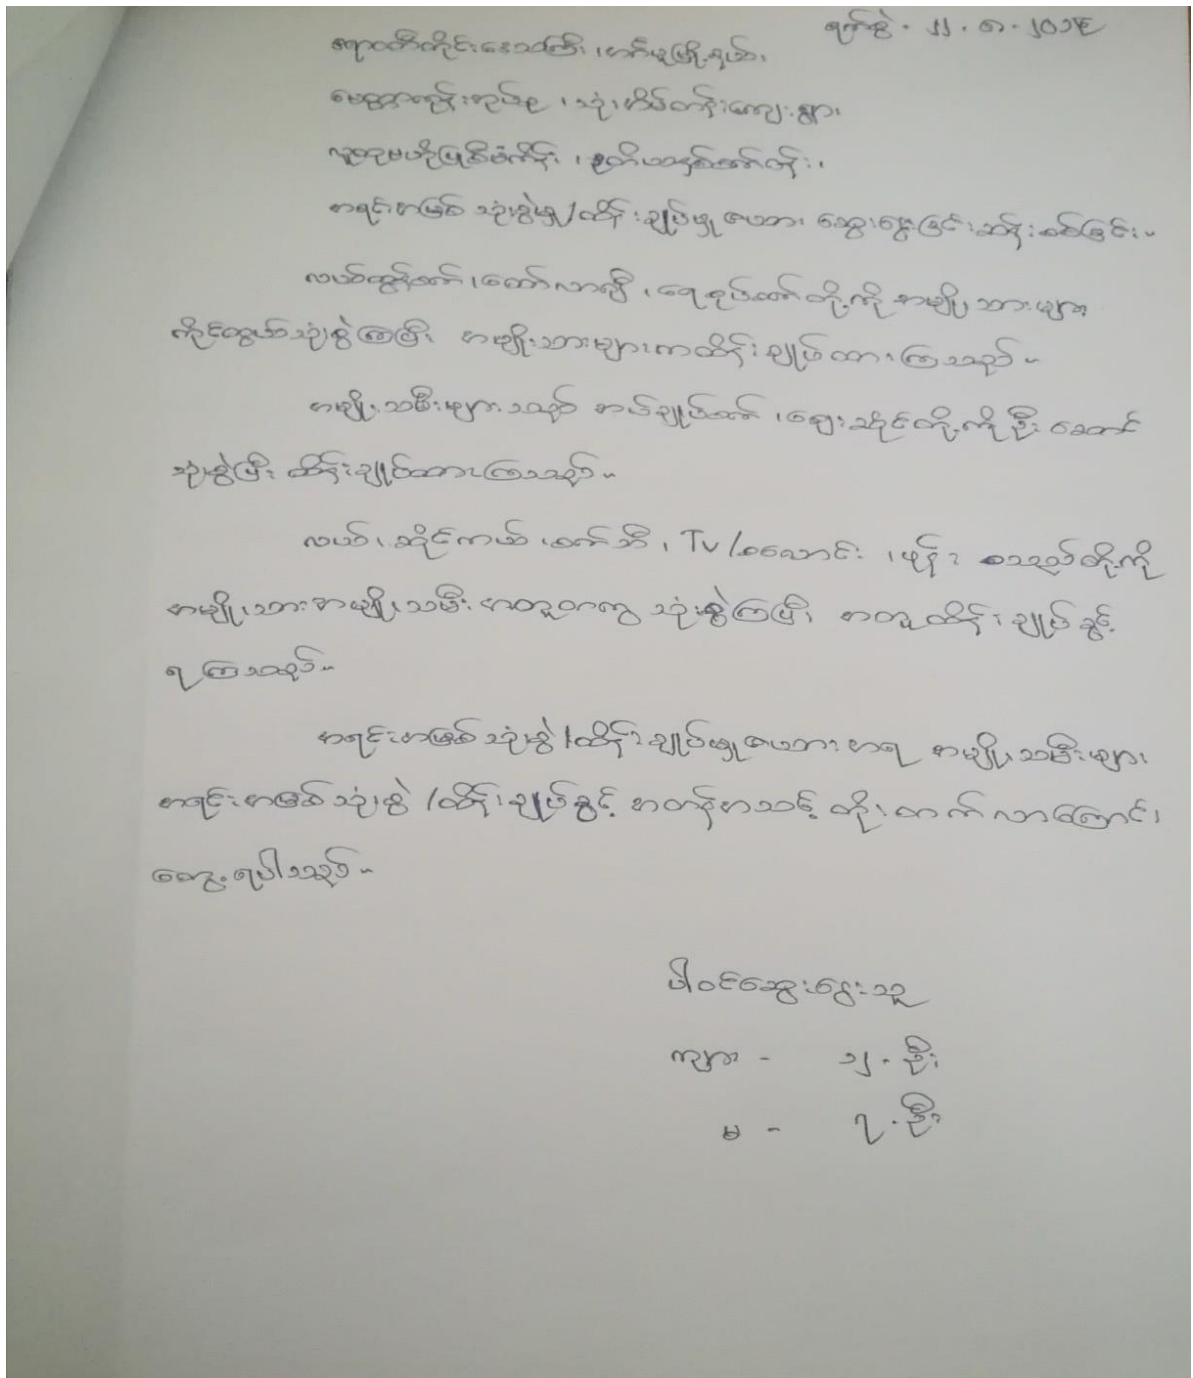 ရက်စွဲ - ၂၂ . ၈ . ၂၀၁၉
ဧရာဝတီတိုင်းဒေသကြီး ၊ ဟင်္သာမြို့နယ်၊
အုပ်စု ၊ သုံးအိမ်တန်းကျေးရွာ၊
လူထုဗဟိုပြုစီမံကိန်း ၊ ဒုတိယနှစ်ပတ်တန်း ၊
အရင်းအမြစ် သုံးစွဲမှု/ထိန်းချုပ်မှု ဇယား ဆွေးနွေးခြင်းဆန်းစစ်ခြင်း။
လယ်ထွန်စက် ၊ တော်လာဂျီ ၊ ရေစုပ်စက်တို့ကို အမျိုးသားများ
ကိုင်တွယ်သုံးစွဲကြပြီး အမျိုးသားများကထိန်းချုပ်ထားကြသည်။
အမျိုးသမီးများသည် အပ်ချုပ်စက် ၊ ဈေးဆိုင်တို့ကို ဦးဆောင်
သုံးစွဲပြီး ထိန်းချုပ်ထားကြသည်။
လယ်၊ ဆိုင်ကယ် ၊ စက်ဘီး ၊ TV /စလောင်း ၊ ဖုန်း စသည်တို့ကို
အမျိုးသားအမျိုးသမီး အတူတကွ သုံးစွဲကြပြီး အတူထိန်းချုပ်ခွင့်
ရကြသည်။
အရင်းအမြစ်သုံးစွဲ/ထိန်းချုပ်မှုဇယားအရ အမျိုးသမီးများ
အရင်းအမြစ်သုံးစွဲ /ထိန်းချုပ်ခွင့် အတန်အသင့် တိုးတက်လာကြောင်း
တွေ့ရပါသည်။
ပါဝင်ဆွေးနွေးသူ
ကျား - ၁၂ . ဦး
မ - ၇ . ဦး